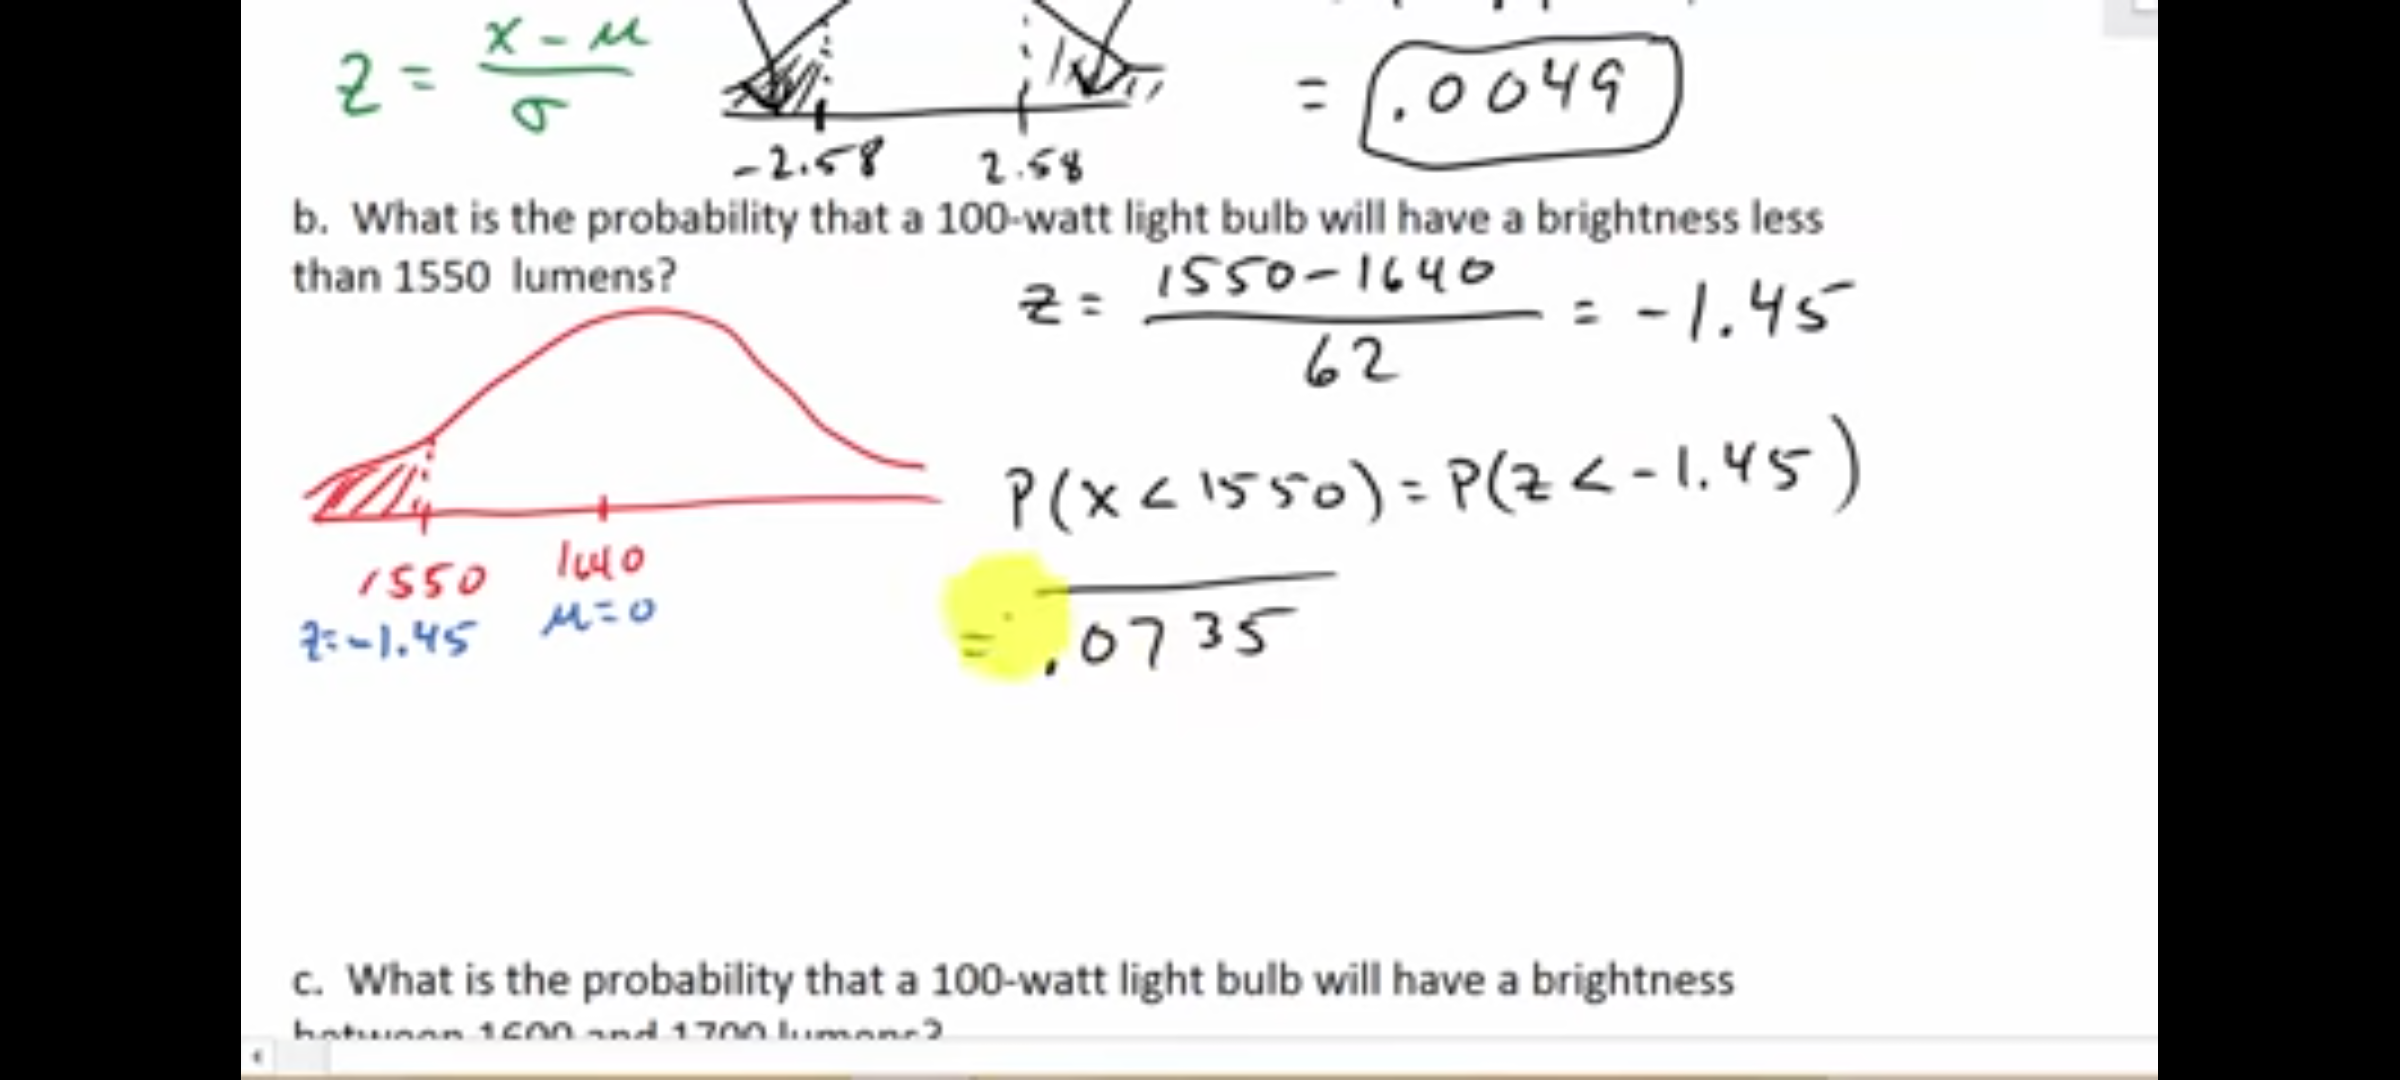 z = x - μ / σ
= .0049
-2.58 2.58
b. What is the probability that a 100-watt light bulb will have a brightness less
than 1550 lumens?
z = 1550-1640 / 62 = -1.45
P(x < 1550) = P(z < -1.45)
1550 1640
z=-1.45 μ=0
= .0735
c. What is the probability that a 100-watt light bulb will have a brightness
between 1600 and 1700 lumens?